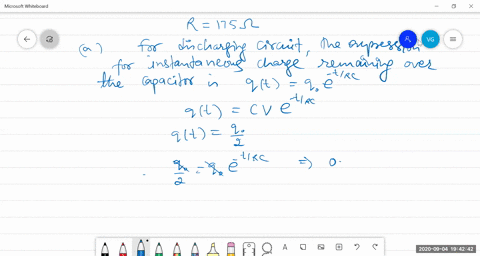 Microsoft Whiteboard
R = 175 Ω
(a) For discharging circuit, the expression
for instantaneous charge remaining over
the capacitor is q(t) = q₀ e^{-t/RC}
q(t) = CV e^{-t/RC}
q(t) = q₀/2
q₀/2 = q₀ e^{-t/RC} ⇒ 0.
VG
2020-09-04 19:42:42